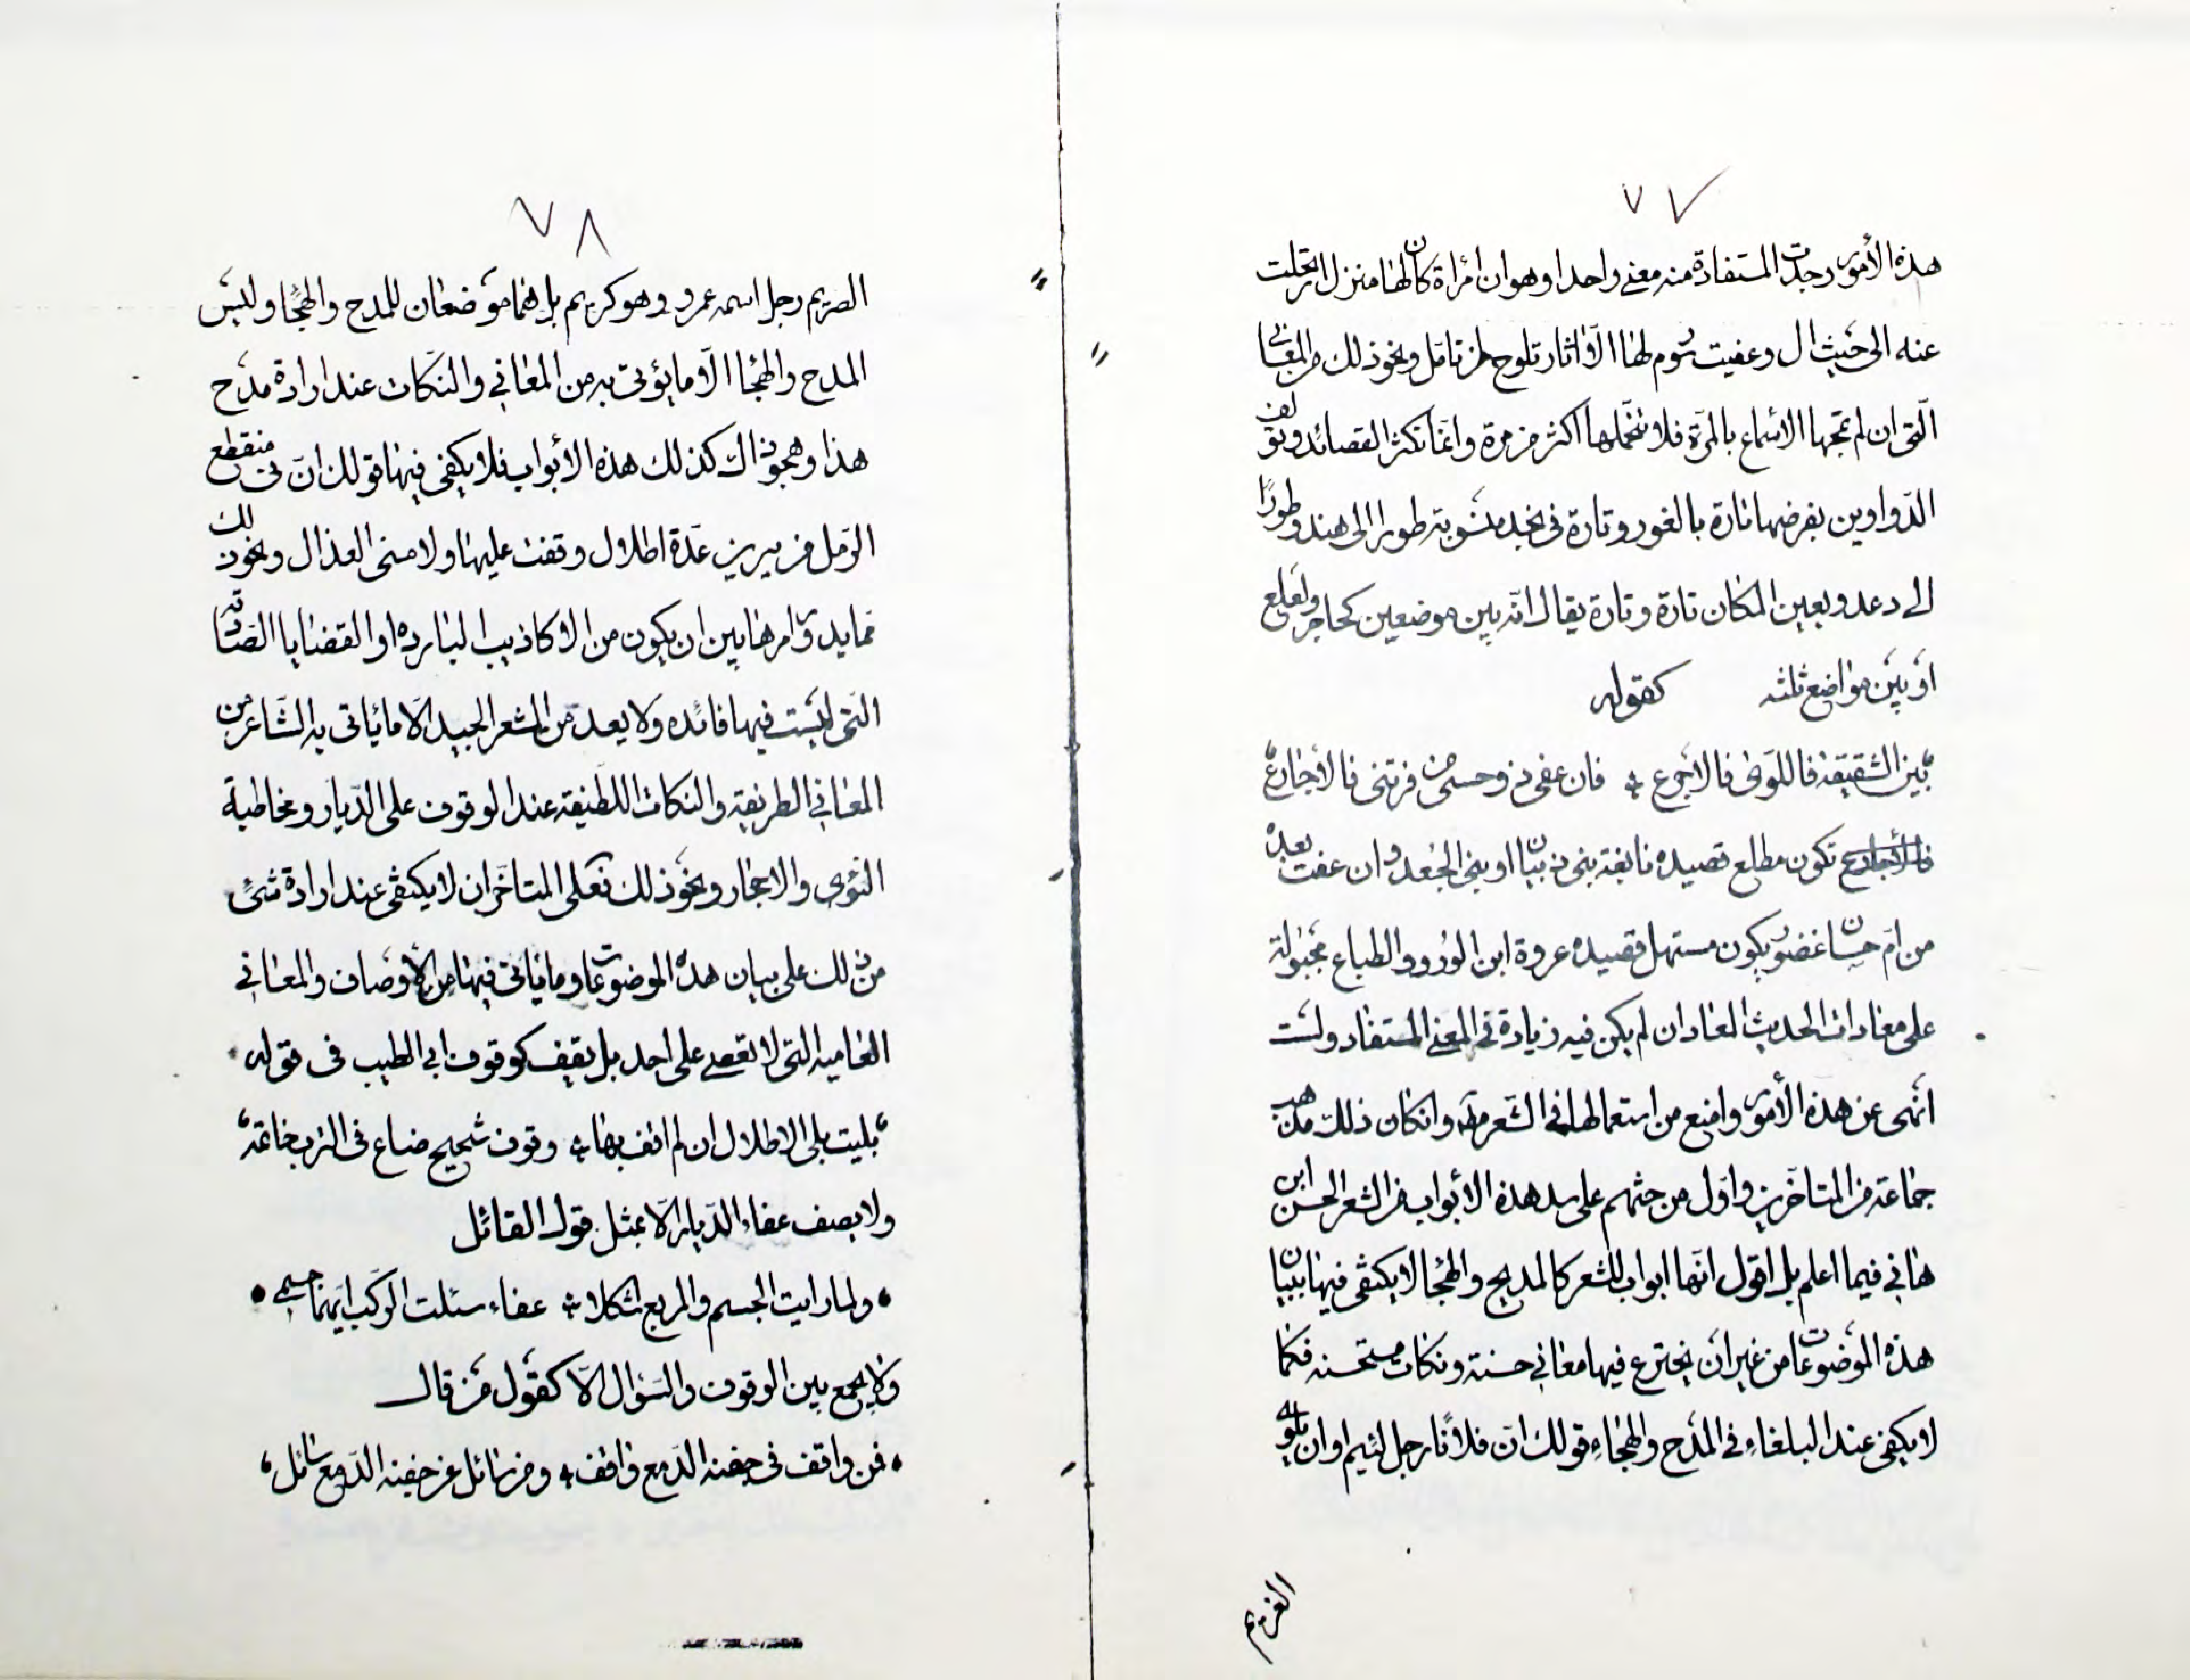 ٧٧
هذه الأمور وجدت المستفادة منه معنى واحدا وهو ان امرأة كان لها منزل ارتحلت
عنه الى حيث ال وعفيت رسوم لها الا اثار تلوح لمن تامل ونحو ذلك من المعاني
التى ان لم تمجها الاسماع بالمرة فلا تتحملها اكثر من مرة وانما تكثر القصائد وتؤلف
الدواوين بفرضها تارة بالغور وتارة فى نجد منسوبة طورا الى هند وطورًا
الى دعد وبعين المكان تارة وتارة يقال انه بين موضعين كحاجر ولعلع
او بين مواضع ثلثه كقوله
بين الشقيقة فاللوى فالاجرع فان عفى ذو حسى من فرتنى فالأجارع
فالأجارع تكون مطلع قصيده نابغة بنى ذبيان او بنى الجعد وان عفت بعده
من ام حسان غضور يكون مستهل قصيده عروة ابن الورد والطباع مجبولة
على معادات الحديث المعاد ان لم يكن فيه زيادة فى المعنى المستفاد ولست
انهى عن هذه الأمور وامنع من استعمالها فى الشعر مطلقا وانكان ذلك مذهب
جماعة من المتاخرين واول من حثهم على سد هذه الأبواب من الشعر الحسن ابن
هانى فيما اعلم بل اقول انها ابواب للشعر كالمديح والهجا لا يكتفى فيها ببيان
هذه الموضوعات من غير ان يخترع فيها معانى حسنة ونكات مستحسنه فكما
لا يكفى عند البلغاء فى المدح والهجاء قولك ان فلانًا رجل لئيم او ان بلوى
الغريم
٧٨
الصريم رجل اسمه عمرو وهو كريم بل هما موضعان للمدح والهجا وليس
المدح والهجا الا ما يؤتى به من المعاني والنكات عند ارادة مدح
هذا وهجو ذاك كذلك هذه الأبواب فلا يكفى فيها قولك ان فى منقطع
الرمل من يبرين عدة اطلال وقفت عليها ولامنى العذال ونحو ذلك
مما يدور امرها بين ان يكون من الاكاذيب البارده او القضايا الصادقة
التى ليست فيها فائده ولا يعد من الشعر الجيد الا ما يأتى به الشاعر من
المعانى الطريفه والنكات اللطيفه عند الوقوف على الديار ومخاطبة
النؤى والاحجار ونحو ذلك فعلى المتاخر ان لا يكتفى عند ارادة شئ
من ذلك على بيان هذه الموضوعات وما ياتى فيها من الأوصاف والمعانى
العاميه التى لا تعصى على احد بل يقف كوقوف ابى الطيب فى قوله
بليت بلى الاطلال ان لم اقف بها وقوف شحيح ضاع فى الترب خاتمه
ولا يصف عفاء الديار الا بمثل قول القائل
ولما رايت الجسم والربع اشكلا عفاء سئلت الركب ايهما جسمى
ولا يجمع بين الوقوف والسؤال الا كقول من قال
فمن واقف فى جفنه الدمع واقف ومن سائل عن جفنه الدمع سائل